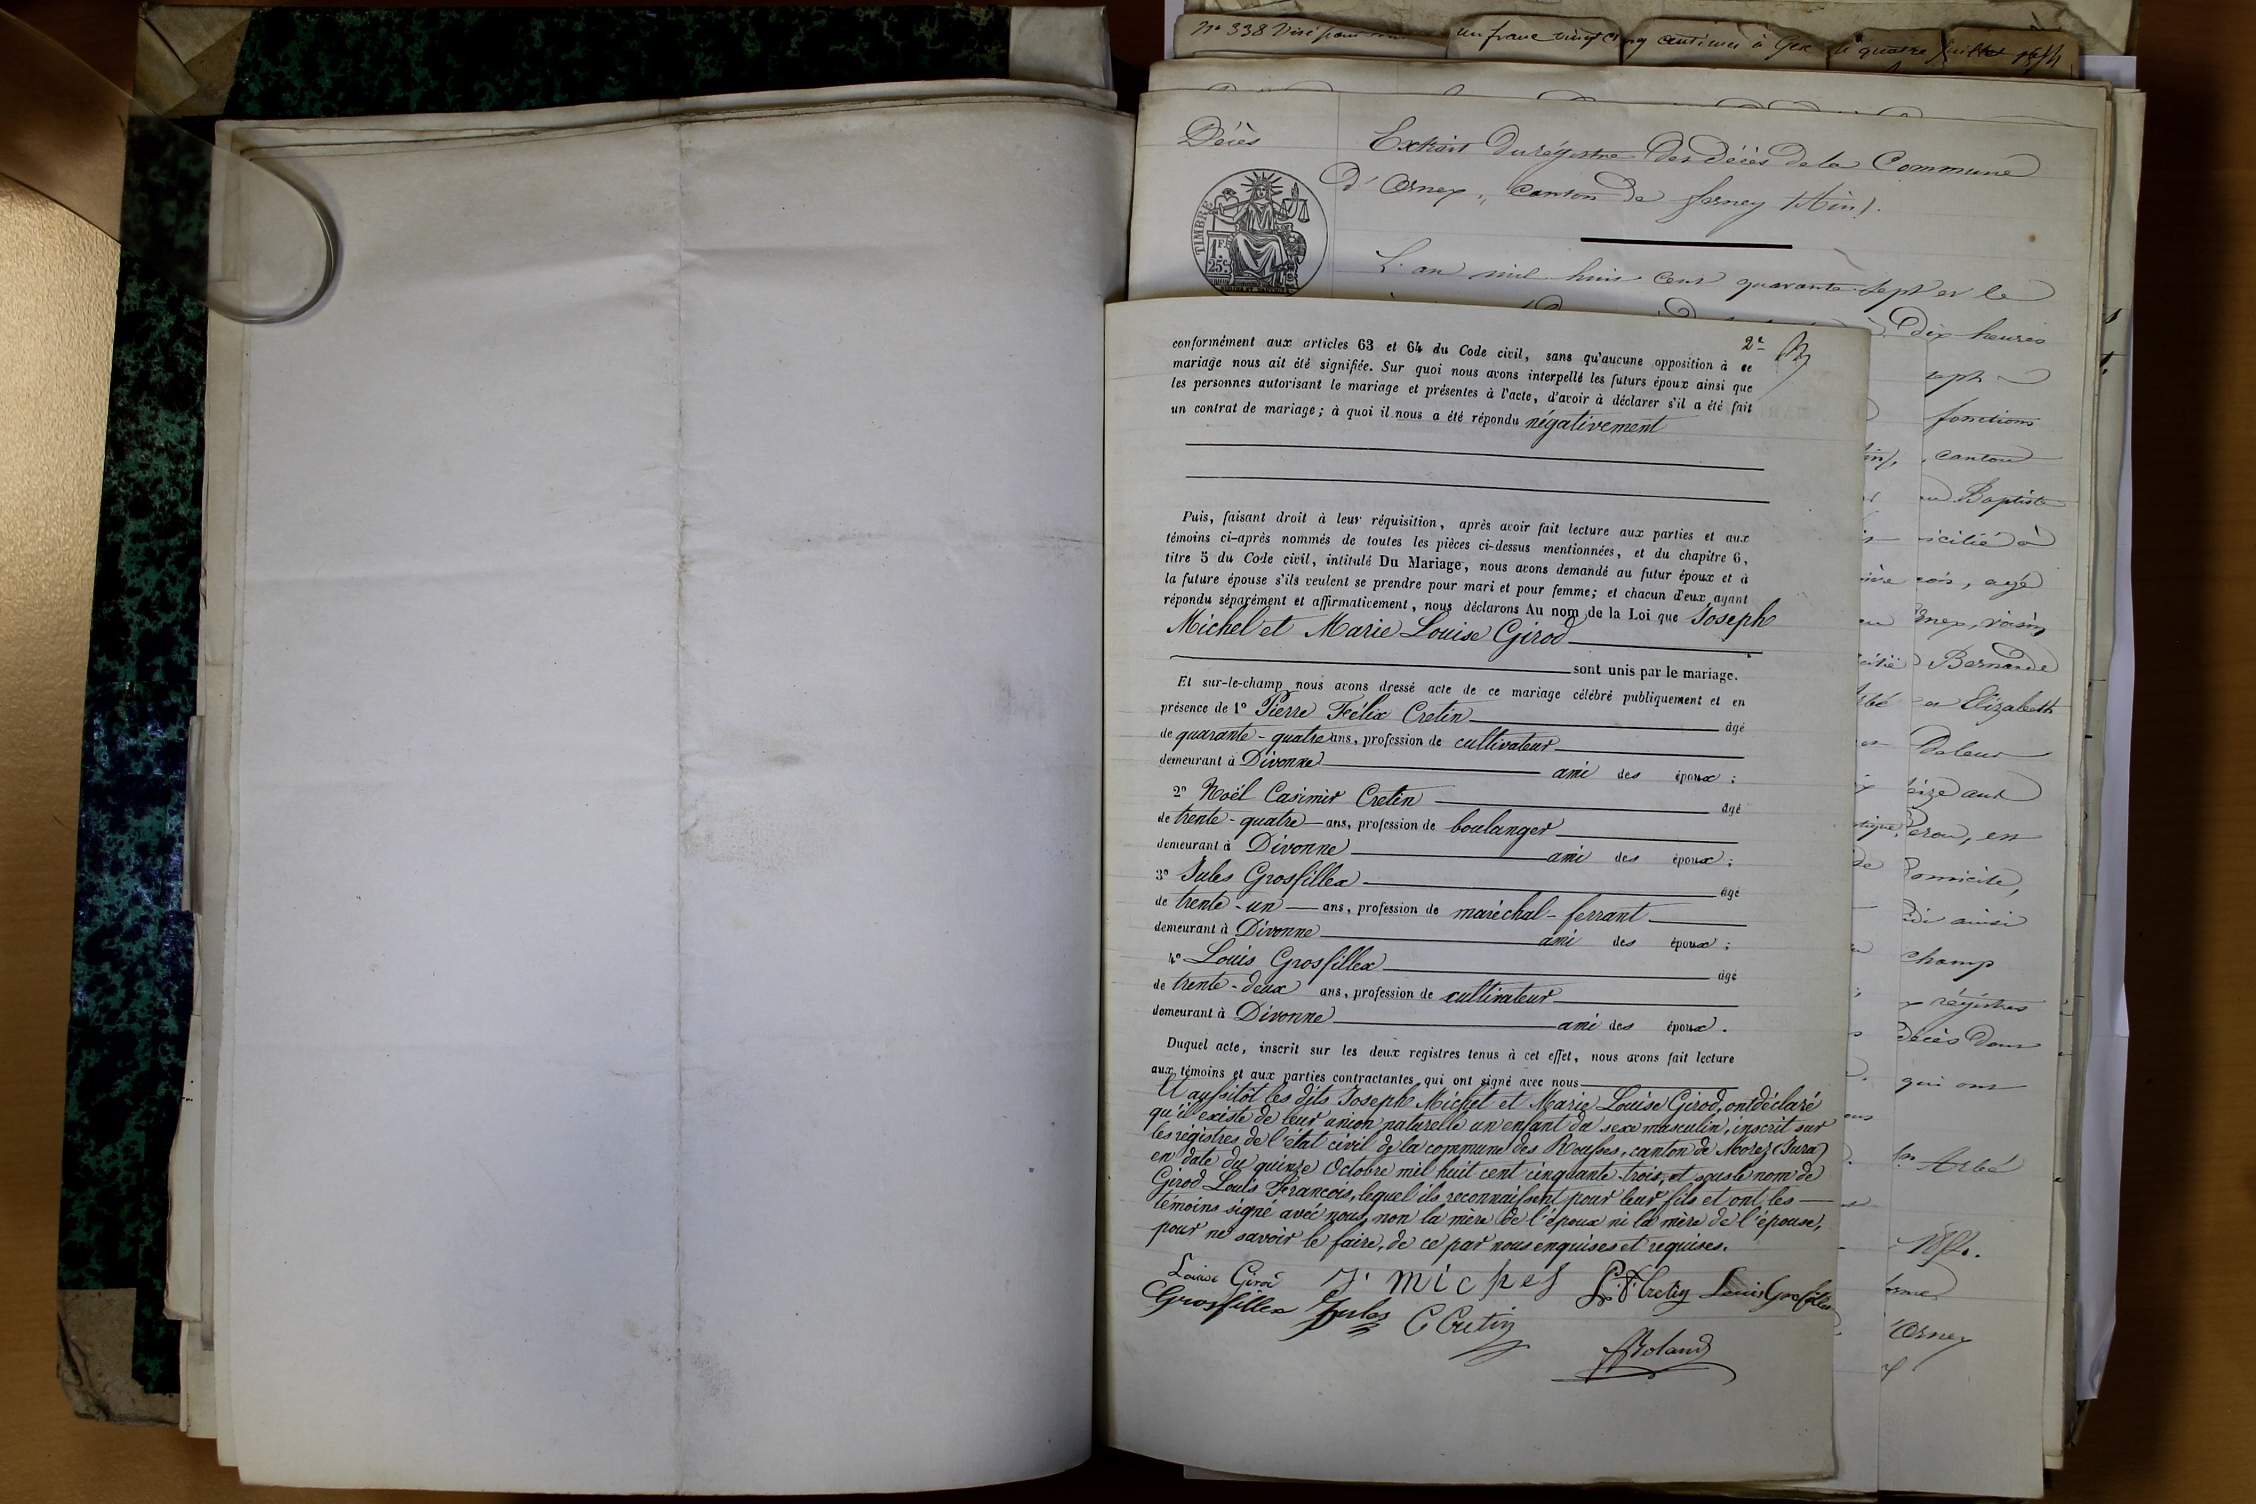 N° 338 Visé pour un franc vingt cinq centimes à Gex le quatre juillet
Décès
Extrait du régistre des décès de la Commune
d'Ornex, canton de Ferney (Ain).
TIMBRE
1 F.
25 c.
L'an mil huit cent quarante sept et le
dix heures
fonctions
canton
Baptiste
icilié à
cois, agé
Ornex, voisin
Bernarde
et Elizabeth
De leur
seize aut
en
Domicile,
ainsi
champ
régistres
Décès dans
qui ont
Ornex
2e
conformément aux articles 63 et 64 du Code civil, sans qu'aucune opposition à ce
mariage nous ait été signifiée. Sur quoi nous avons interpellé les futurs époux ainsi que
les personnes autorisant le mariage et présentes à l'acte, d'avoir à déclarer s'il a été fait
un contrat de mariage; à quoi il nous a été répondu négativement
Puis, faisant droit à leur réquisition, après avoir fait lecture aux parties et aux
témoins ci-après nommés de toutes les pièces ci-dessus mentionnées, et du chapitre 6,
titre 5 du Code civil, intitulé Du Mariage, nous avons demandé au futur époux et à
la future épouse s'ils veulent se prendre pour mari et pour femme; et chacun d'eux ayant
répondu séparément et affirmativement, nous déclarons Au nom de la Loi que Joseph
Michel et Marie Louise Girod
sont unis par le mariage.
Et sur-le-champ nous avons dressé acte de ce mariage célébré publiquement et en
présence de 1° Pierre Félix Cretin âgé
de quarante-quatre ans, profession de cultivateur
demeurant à Divonne ami des époux;
2° Noël Casimir Cretin âgé
de trente-quatre ans, profession de boulanger
demeurant à Divonne ami des époux;
3° Jules Grosfillex âgé
de trente-un ans, profession de maréchal-ferrant
demeurant à Divonne ami des époux;
4° Louis Grosfillex âgé
de trente-deux ans, profession de cultivateur
demeurant à Divonne ami des époux.
Duquel acte, inscrit sur les deux registres tenus à cet effet, nous avons fait lecture
aux témoins et aux parties contractantes qui ont signé avec nous
Et aussitôt les dits Joseph Michel et Marie Louise Girod, ont déclaré
qu'il existe de leur union naturelle un enfant du sexe masculin, inscrit sur
les régistres de l'état civil de la commune des Rousses, canton de Morez (Jura)
en date du quinze Octobre mil huit cent cinquante trois, et sous le nom de
Girod Louis François, lequel ils reconnaissent pour leur fils et ont les
témoins signé avec nous, non la mère de l'époux ni la mère de l'épouse,
pour ne savoir le faire, de ce par nous enquises et requises.
Louise Girod J. Michel P. F. Cretin Louis Grosfillex
Grosfillex Jules C Cretin
Roland